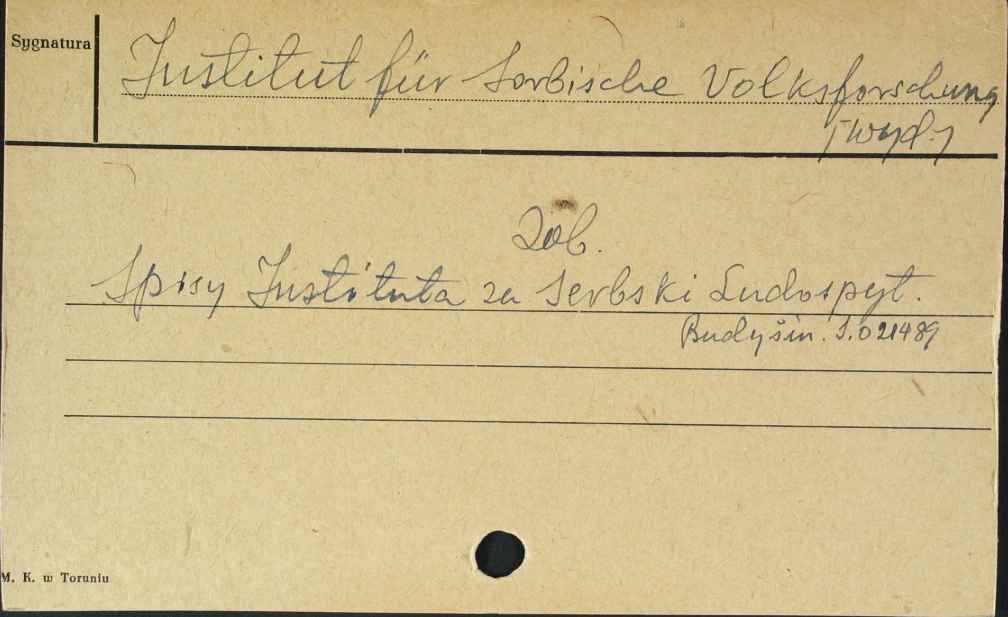 Sygnatura
Institut für Sorbische Volksforschung
[wyd.]
Zob.
Spisy Instituta za Serbski Ludospyt.
Budyšin. S.021489
M. K. w Toruniu